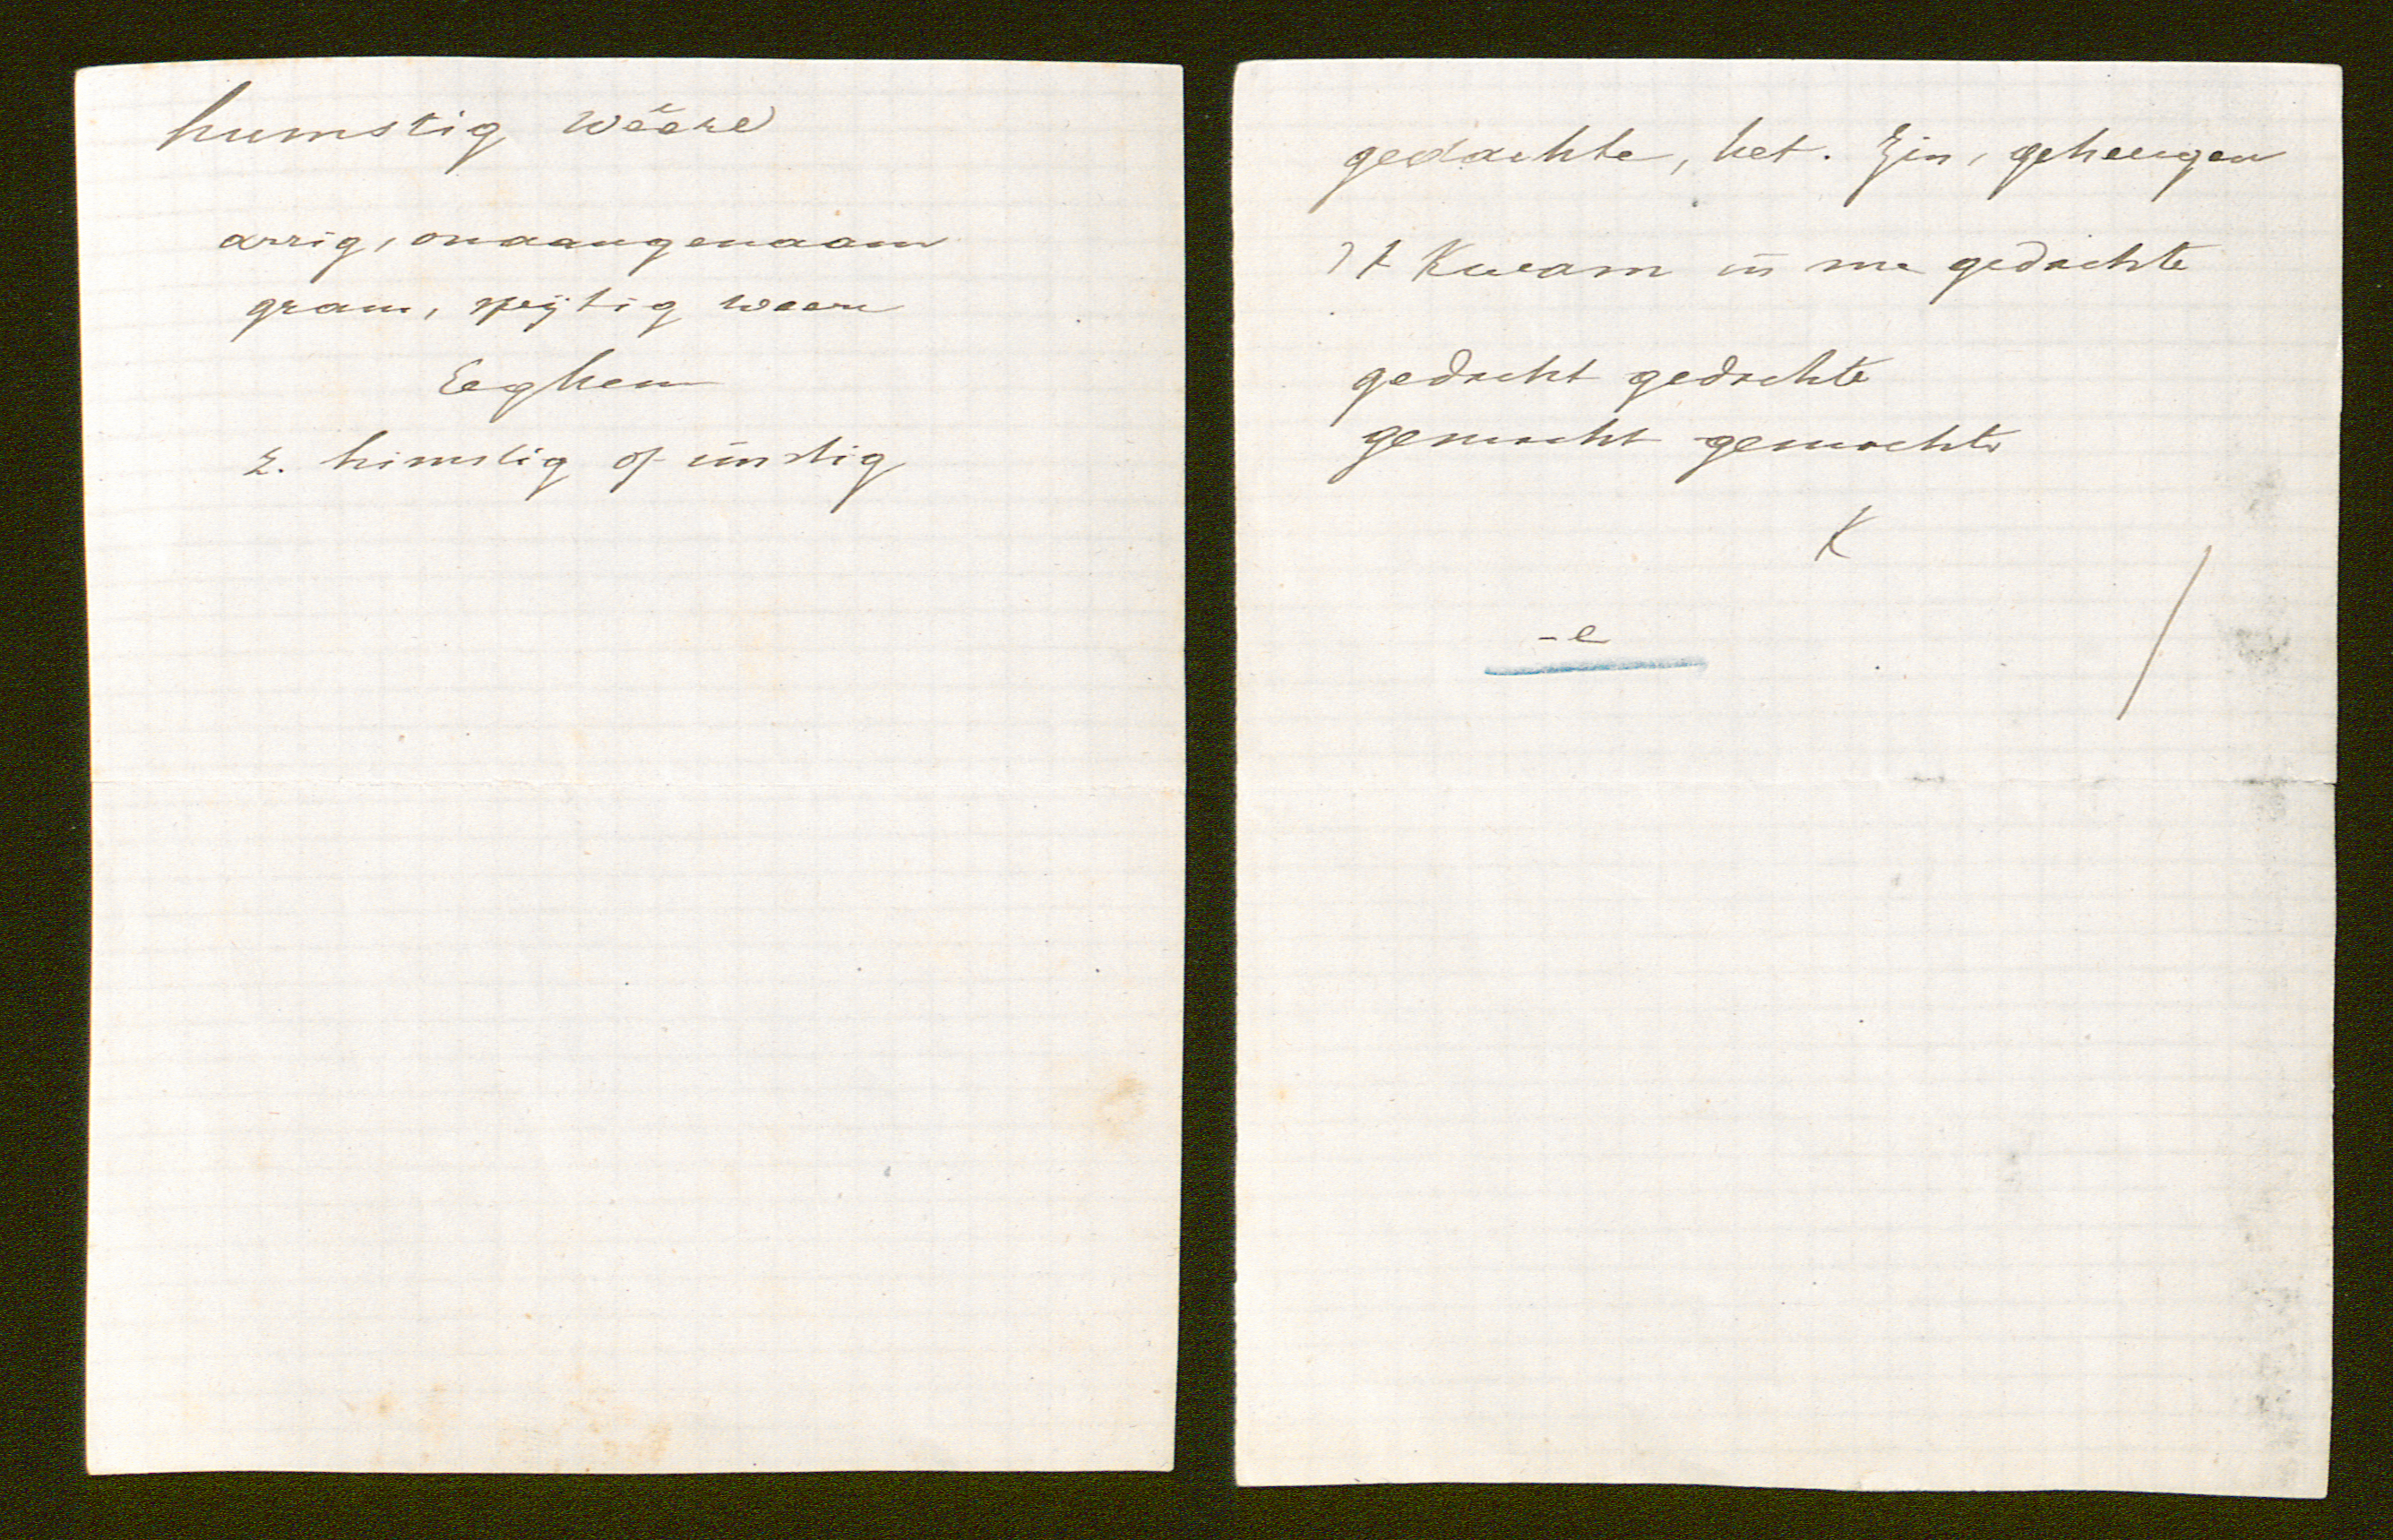 humstig wëere
arrig, onaangenaam
gram, spijtig weere
Eeghem
z. himstig of imstig
gedachte, het. Zin, geheugen
't Kwam in me gedachte
gedacht gedachte
gemacht gemachte
K
-e